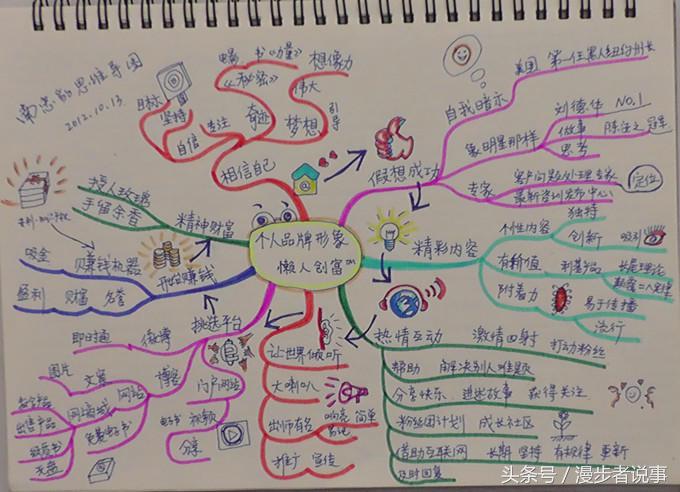 思维导图
2012.10.13
个人品牌形象
懒人创富
相信自己
目标
坚持
自信
专注
奇迹
《秘密》
电影 书《力量》 想像力
伟大
梦想
引导
假想成功
自我暗示
美国 第一任黑人纽约州长
象明星那样
刘德华 NO.1
做事
思考
专家
客户问题处理专家
最新咨询发布中心
定位
精彩内容
个性内容
独特
创新
吸引
有价值
利基产品
长尾理论
附着力
易于传播
流行
热情互动 激情四射 打动粉丝
帮助 解决别人难题
分享快乐 进步故事 获得关注
粉丝团计划 成长社区
借助互联网 长期 坚持 有规律 更新
及时回复
让世界倾听
大喇叭
响亮 简单
易记
出师有名
推广 宣传
挑选平台
即时通 微博
图片 文章 博客
门户网站
网络域 网站
出售产品
免费电子书
电子书 视频
分享
开始赚钱
赚钱机器
吸金
盈利 财富 名誉
精神财富
授人玫瑰
手留余香
头条号／漫步者说事